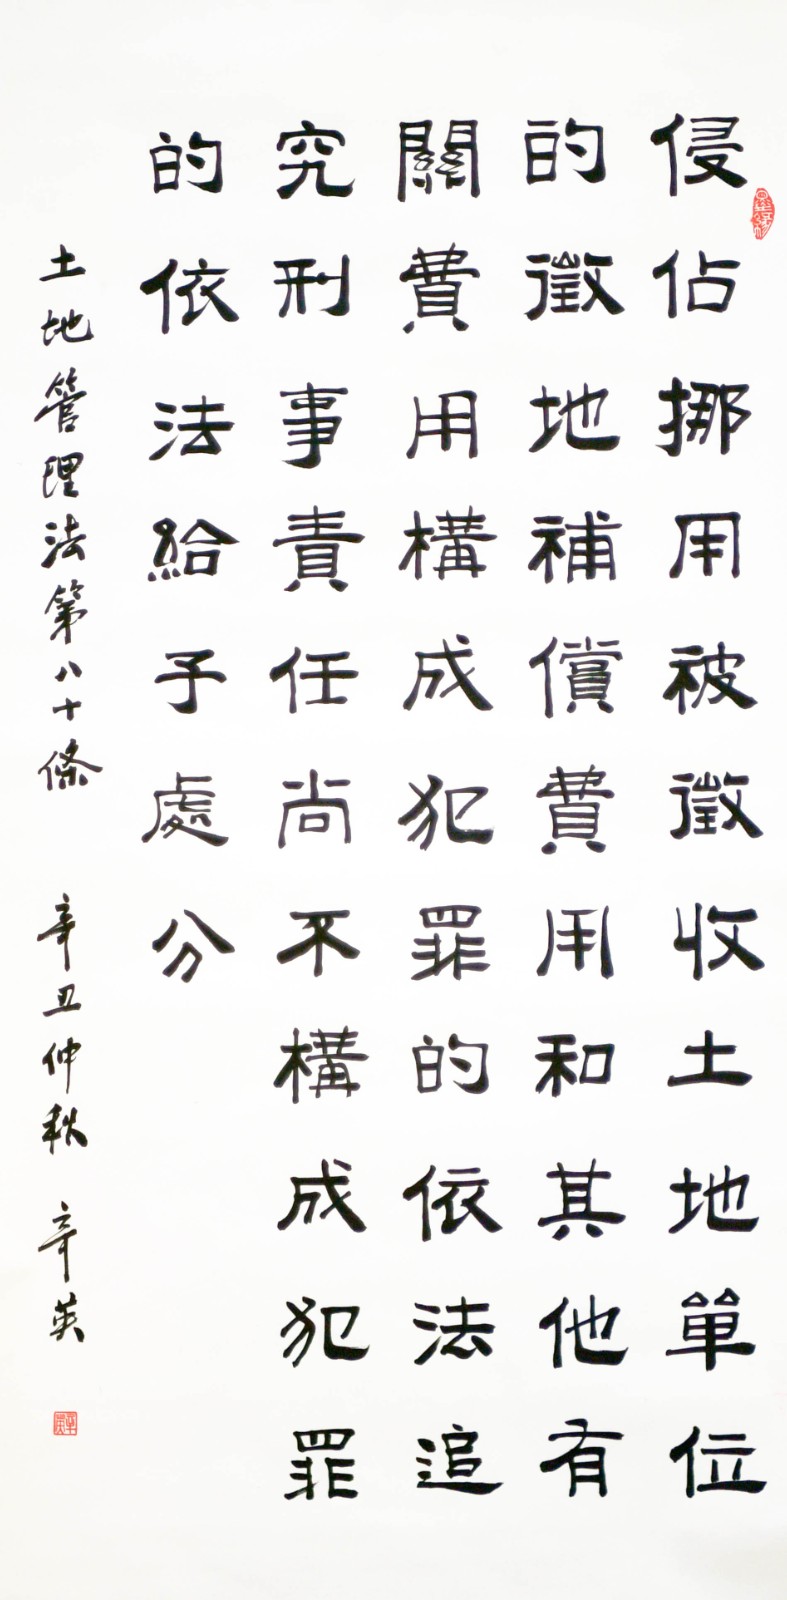 侵佔挪用被徵收土地單位
的徵地補償費用和其他有
關費用構成犯罪的依法追
究刑事責任尚不構成犯罪
的依法給予處分
土地管理法第八十條 辛丑仲秋 辛英